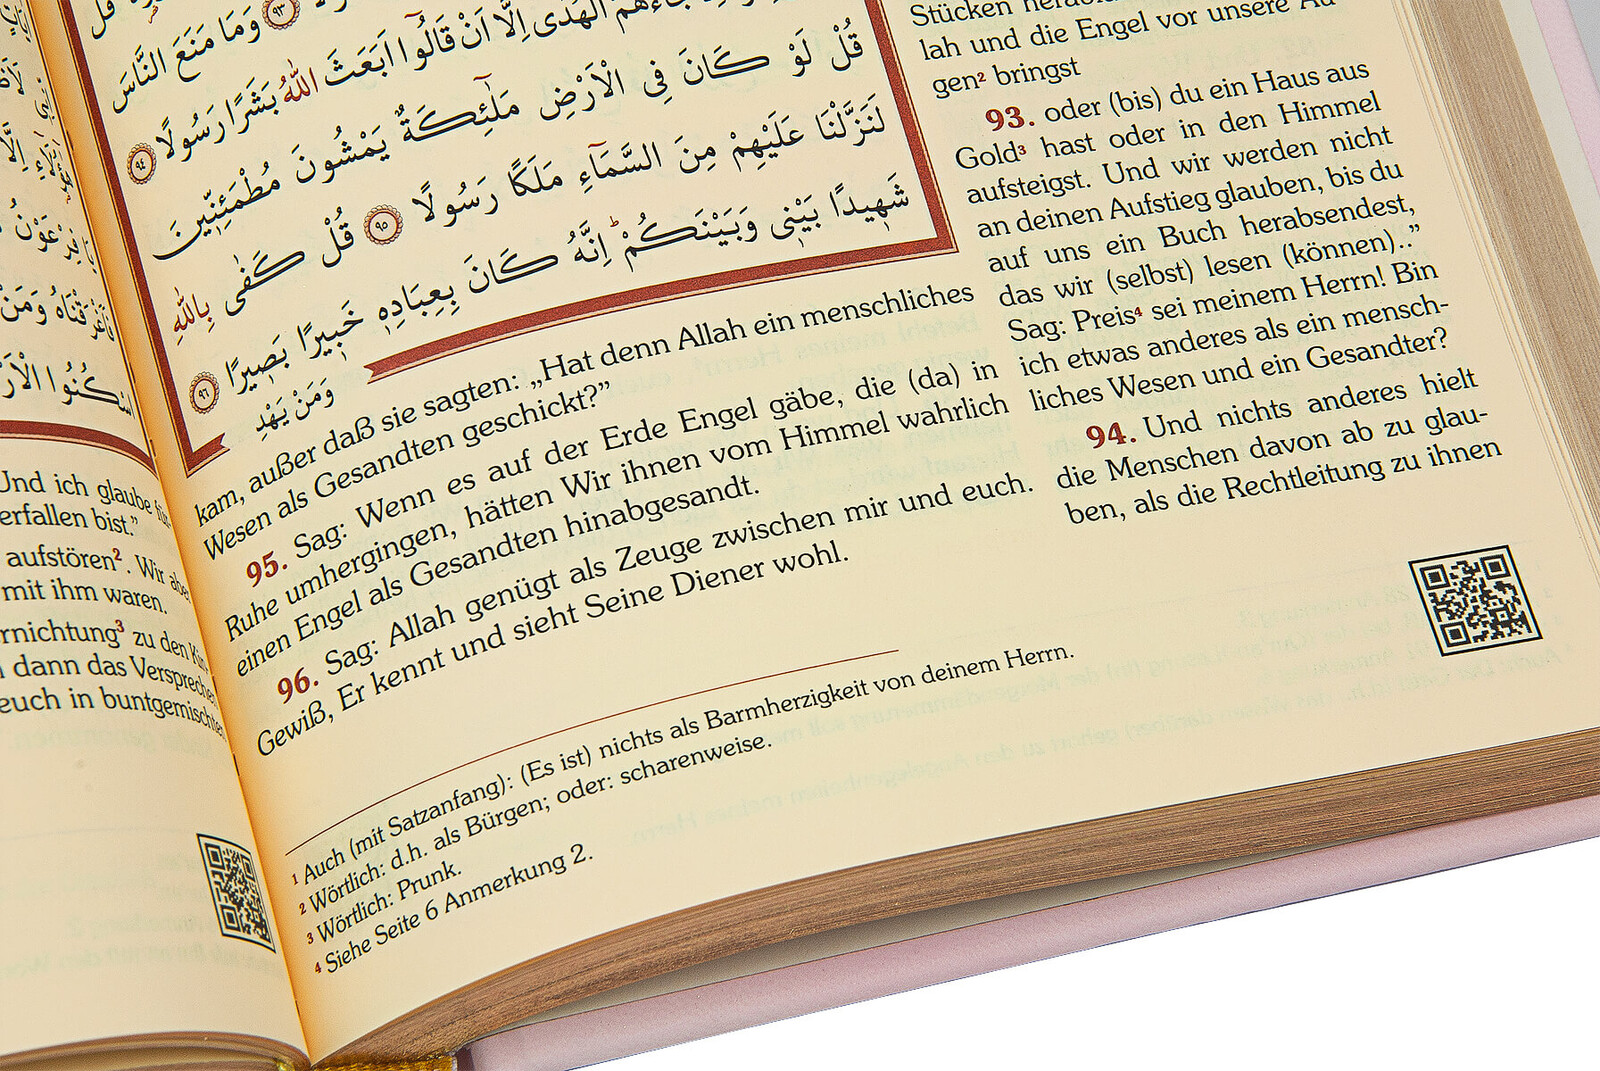 وَمَا مَنَعَ النَّاسَ
الْهُدٰٓى اِلَّٓا اَنْ قَالُٓوا اَبَعَثَ اللّٰهُ بَشَرًا رَسُولًا ﴿٩٤﴾
قُلْ لَوْ كَانَ فِي الْاَرْضِ مَلٰٓئِكَةٌ يَمْشُونَ مُطْمَئِنّ۪ينَ
لَنَزَّلْنَا عَلَيْهِمْ مِنَ السَّمَٓاءِ مَلَكًا رَسُولًا ﴿٩٥﴾ قُلْ كَفٰى بِاللّٰهِ
شَه۪يدًا بَيْن۪ي وَبَيْنَكُمْۜ اِنَّهُ كَانَ بِعِبَادِه۪ خَب۪يرًا بَص۪يرًا ﴿٩٦﴾
وَمَنْ يَهْدِ
Stücken
lah und die Engel vor unsere Au-
gen² bringst
93. oder (bis) du ein Haus aus
Gold³ hast oder in den Himmel
aufsteigst. Und wir werden nicht
an deinen Aufstieg glauben, bis du
auf uns ein Buch herabsendest,
das wir (selbst) lesen (können)..”
Sag: Preis⁴ sei meinem Herrn! Bin
ich etwas anderes als ein mensch-
liches Wesen und ein Gesandter?
94. Und nichts anderes hielt
die Menschen davon ab zu glau-
ben, als die Rechtleitung zu ihnen
kam, außer daß sie sagten: „Hat denn Allah ein menschliches
Wesen als Gesandten geschickt?”
95. Sag: Wenn es auf der Erde Engel gäbe, die (da) in
Ruhe umhergingen, hätten Wir ihnen vom Himmel wahrlich
einen Engel als Gesandten hinabgesandt.
96. Sag: Allah genügt als Zeuge zwischen mir und euch.
Gewiß, Er kennt und sieht Seine Diener wohl.
¹ Auch (mit Satzanfang): (Es ist) nichts als Barmherzigkeit von deinem Herrn.
² Wörtlich: d.h. als Bürgen; oder: scharenweise.
³ Wörtlich: Prunk.
⁴ Siehe Seite 6 Anmerkung 2.
Und ich glaube für-
erfallen bist.”
aufstören². Wir aber
mit ihm waren.
rnichtung³ zu den Kin-
dann das Versprechen
euch in buntgemischten